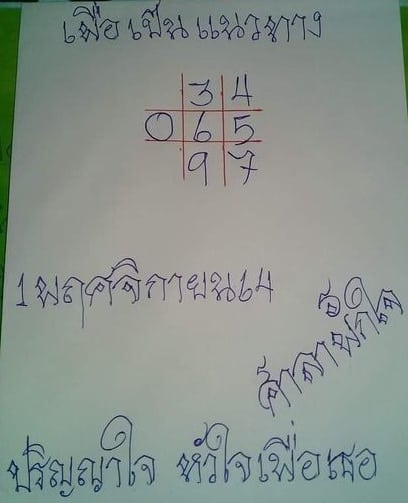 เพื่อเป็นแนวทาง
3 4
0 6 5
9 7
1 พฤศจิกายน 64
ปริญญาใจ หัวใจเพื่อเธอ